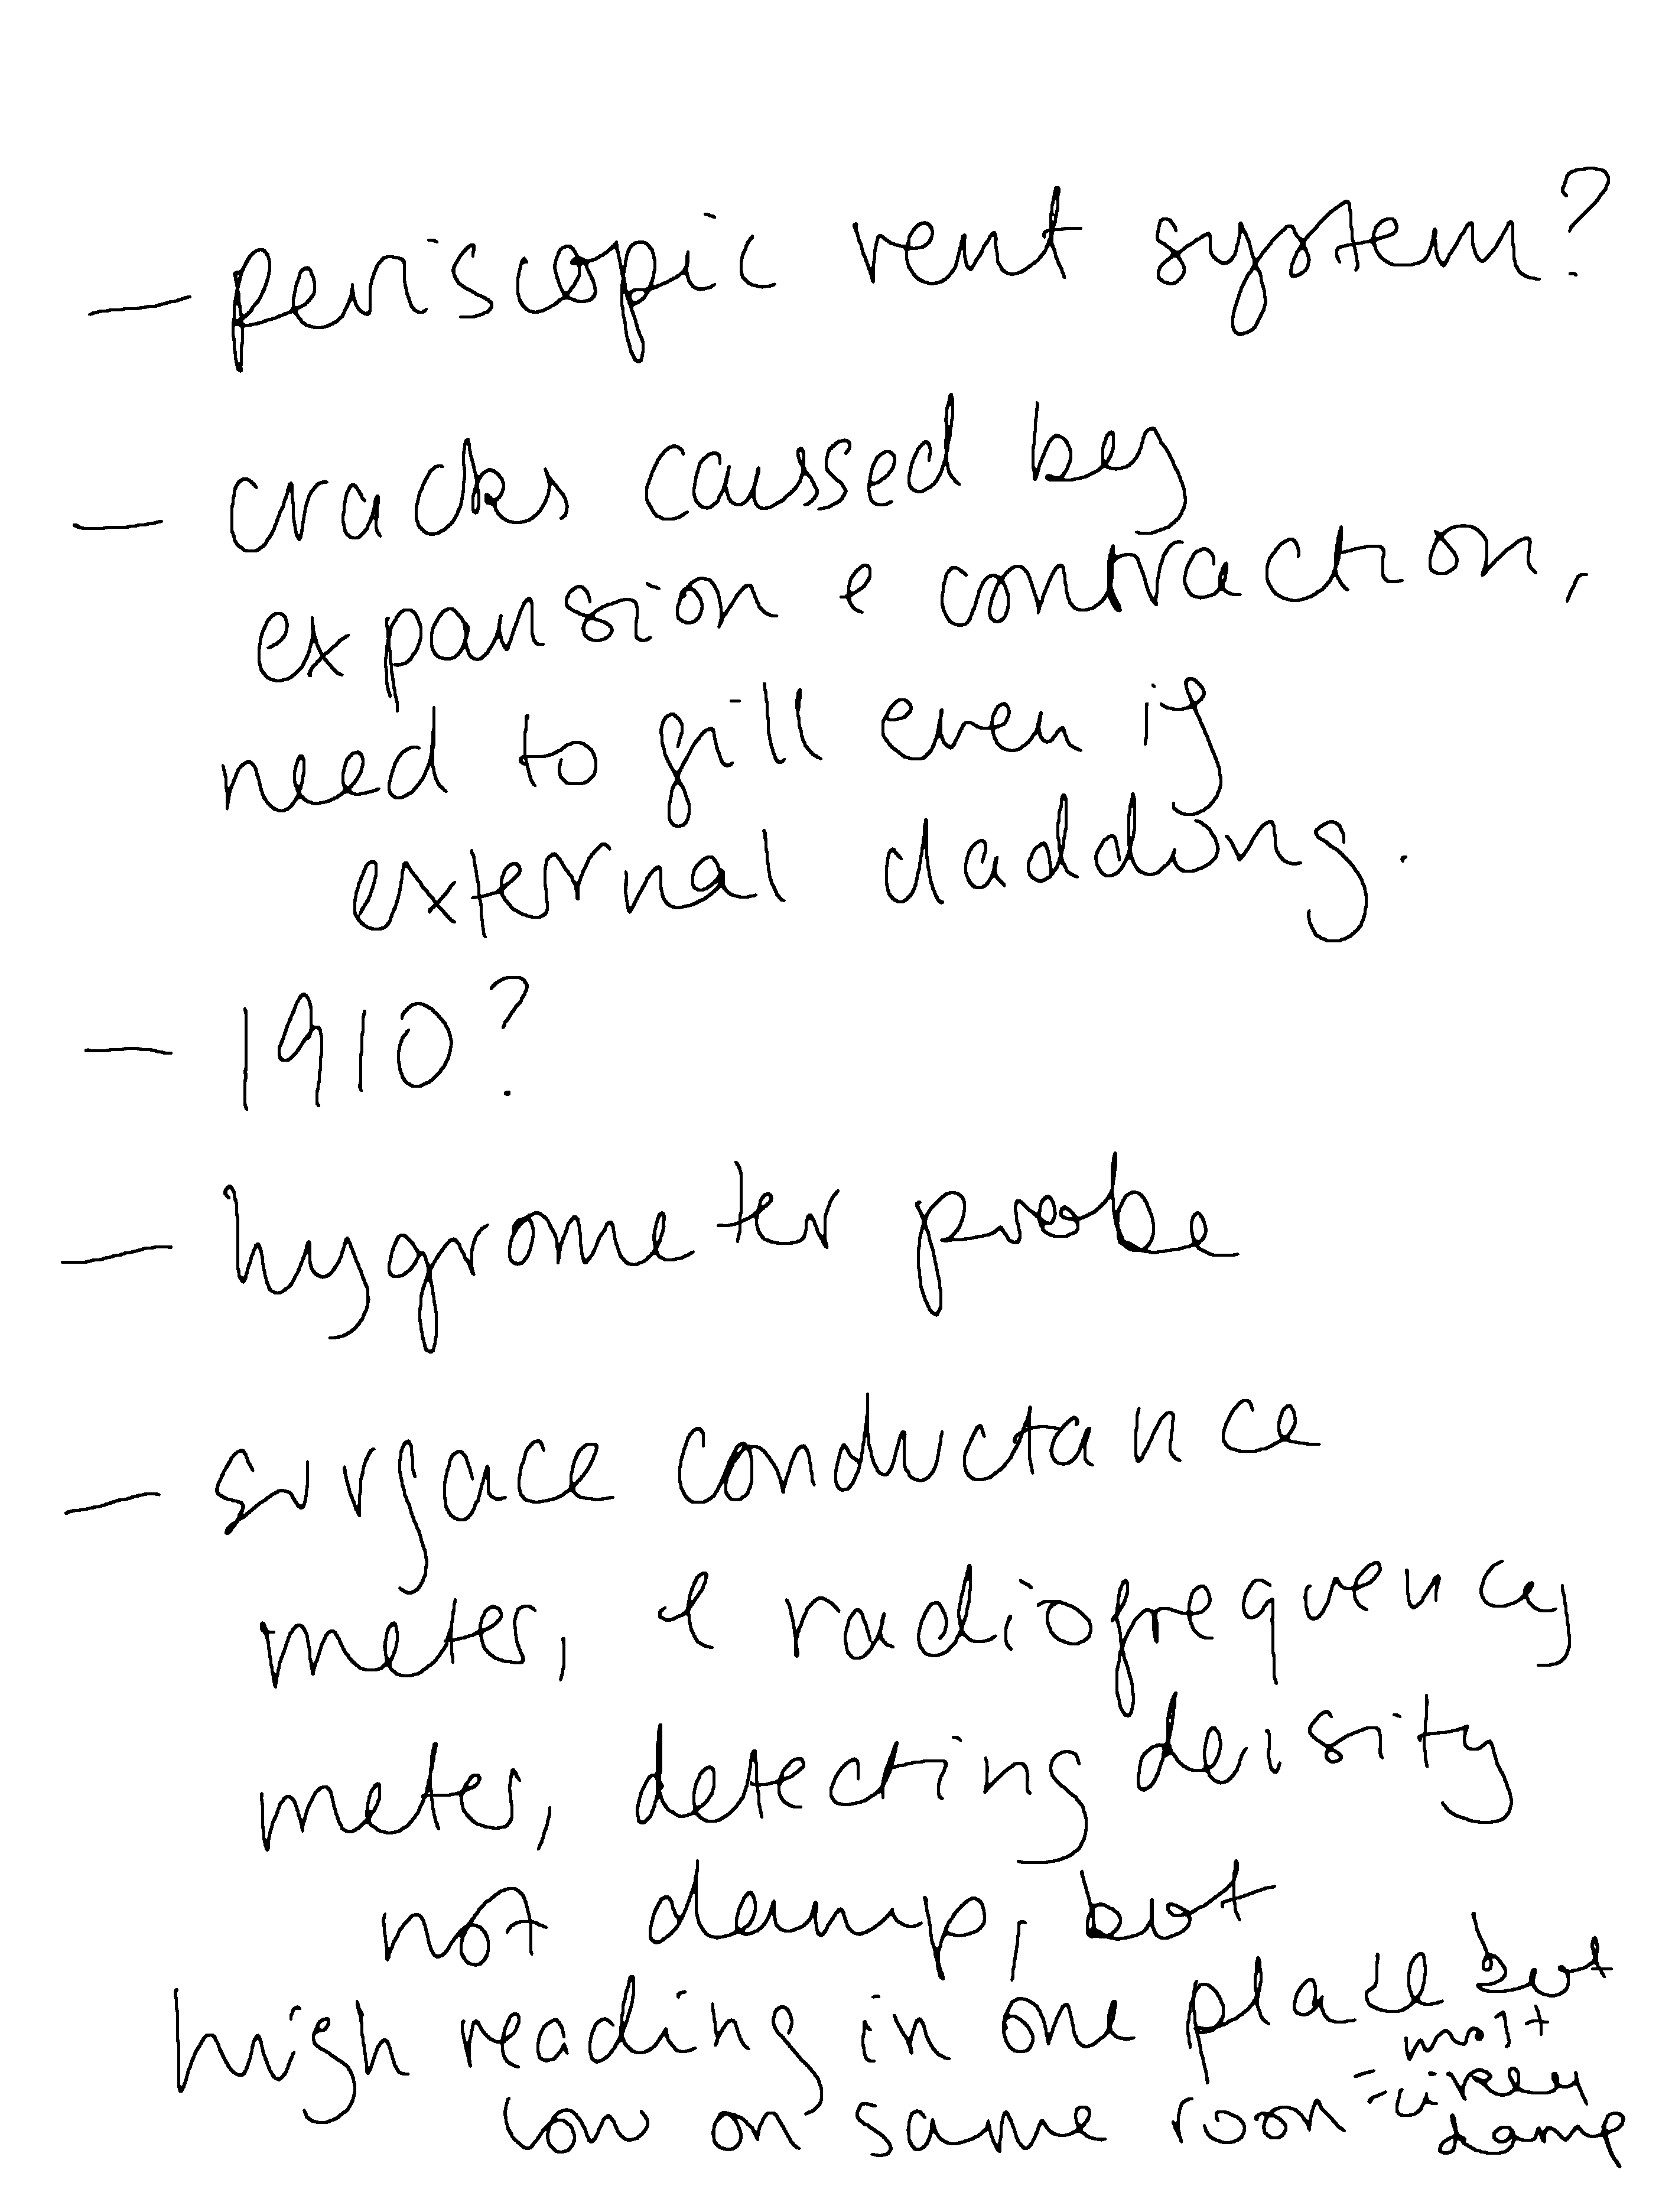 - periscopic vent system?
- cracks caussed by
expansion & contraction,
need to fill even if
external cladding.
- 1910?
- hygrometer probe
- surface conductance
meter, & radiofrequency
meter, detecting density
not damp, but
high reading in one place but
low on same room = most
likely
damp